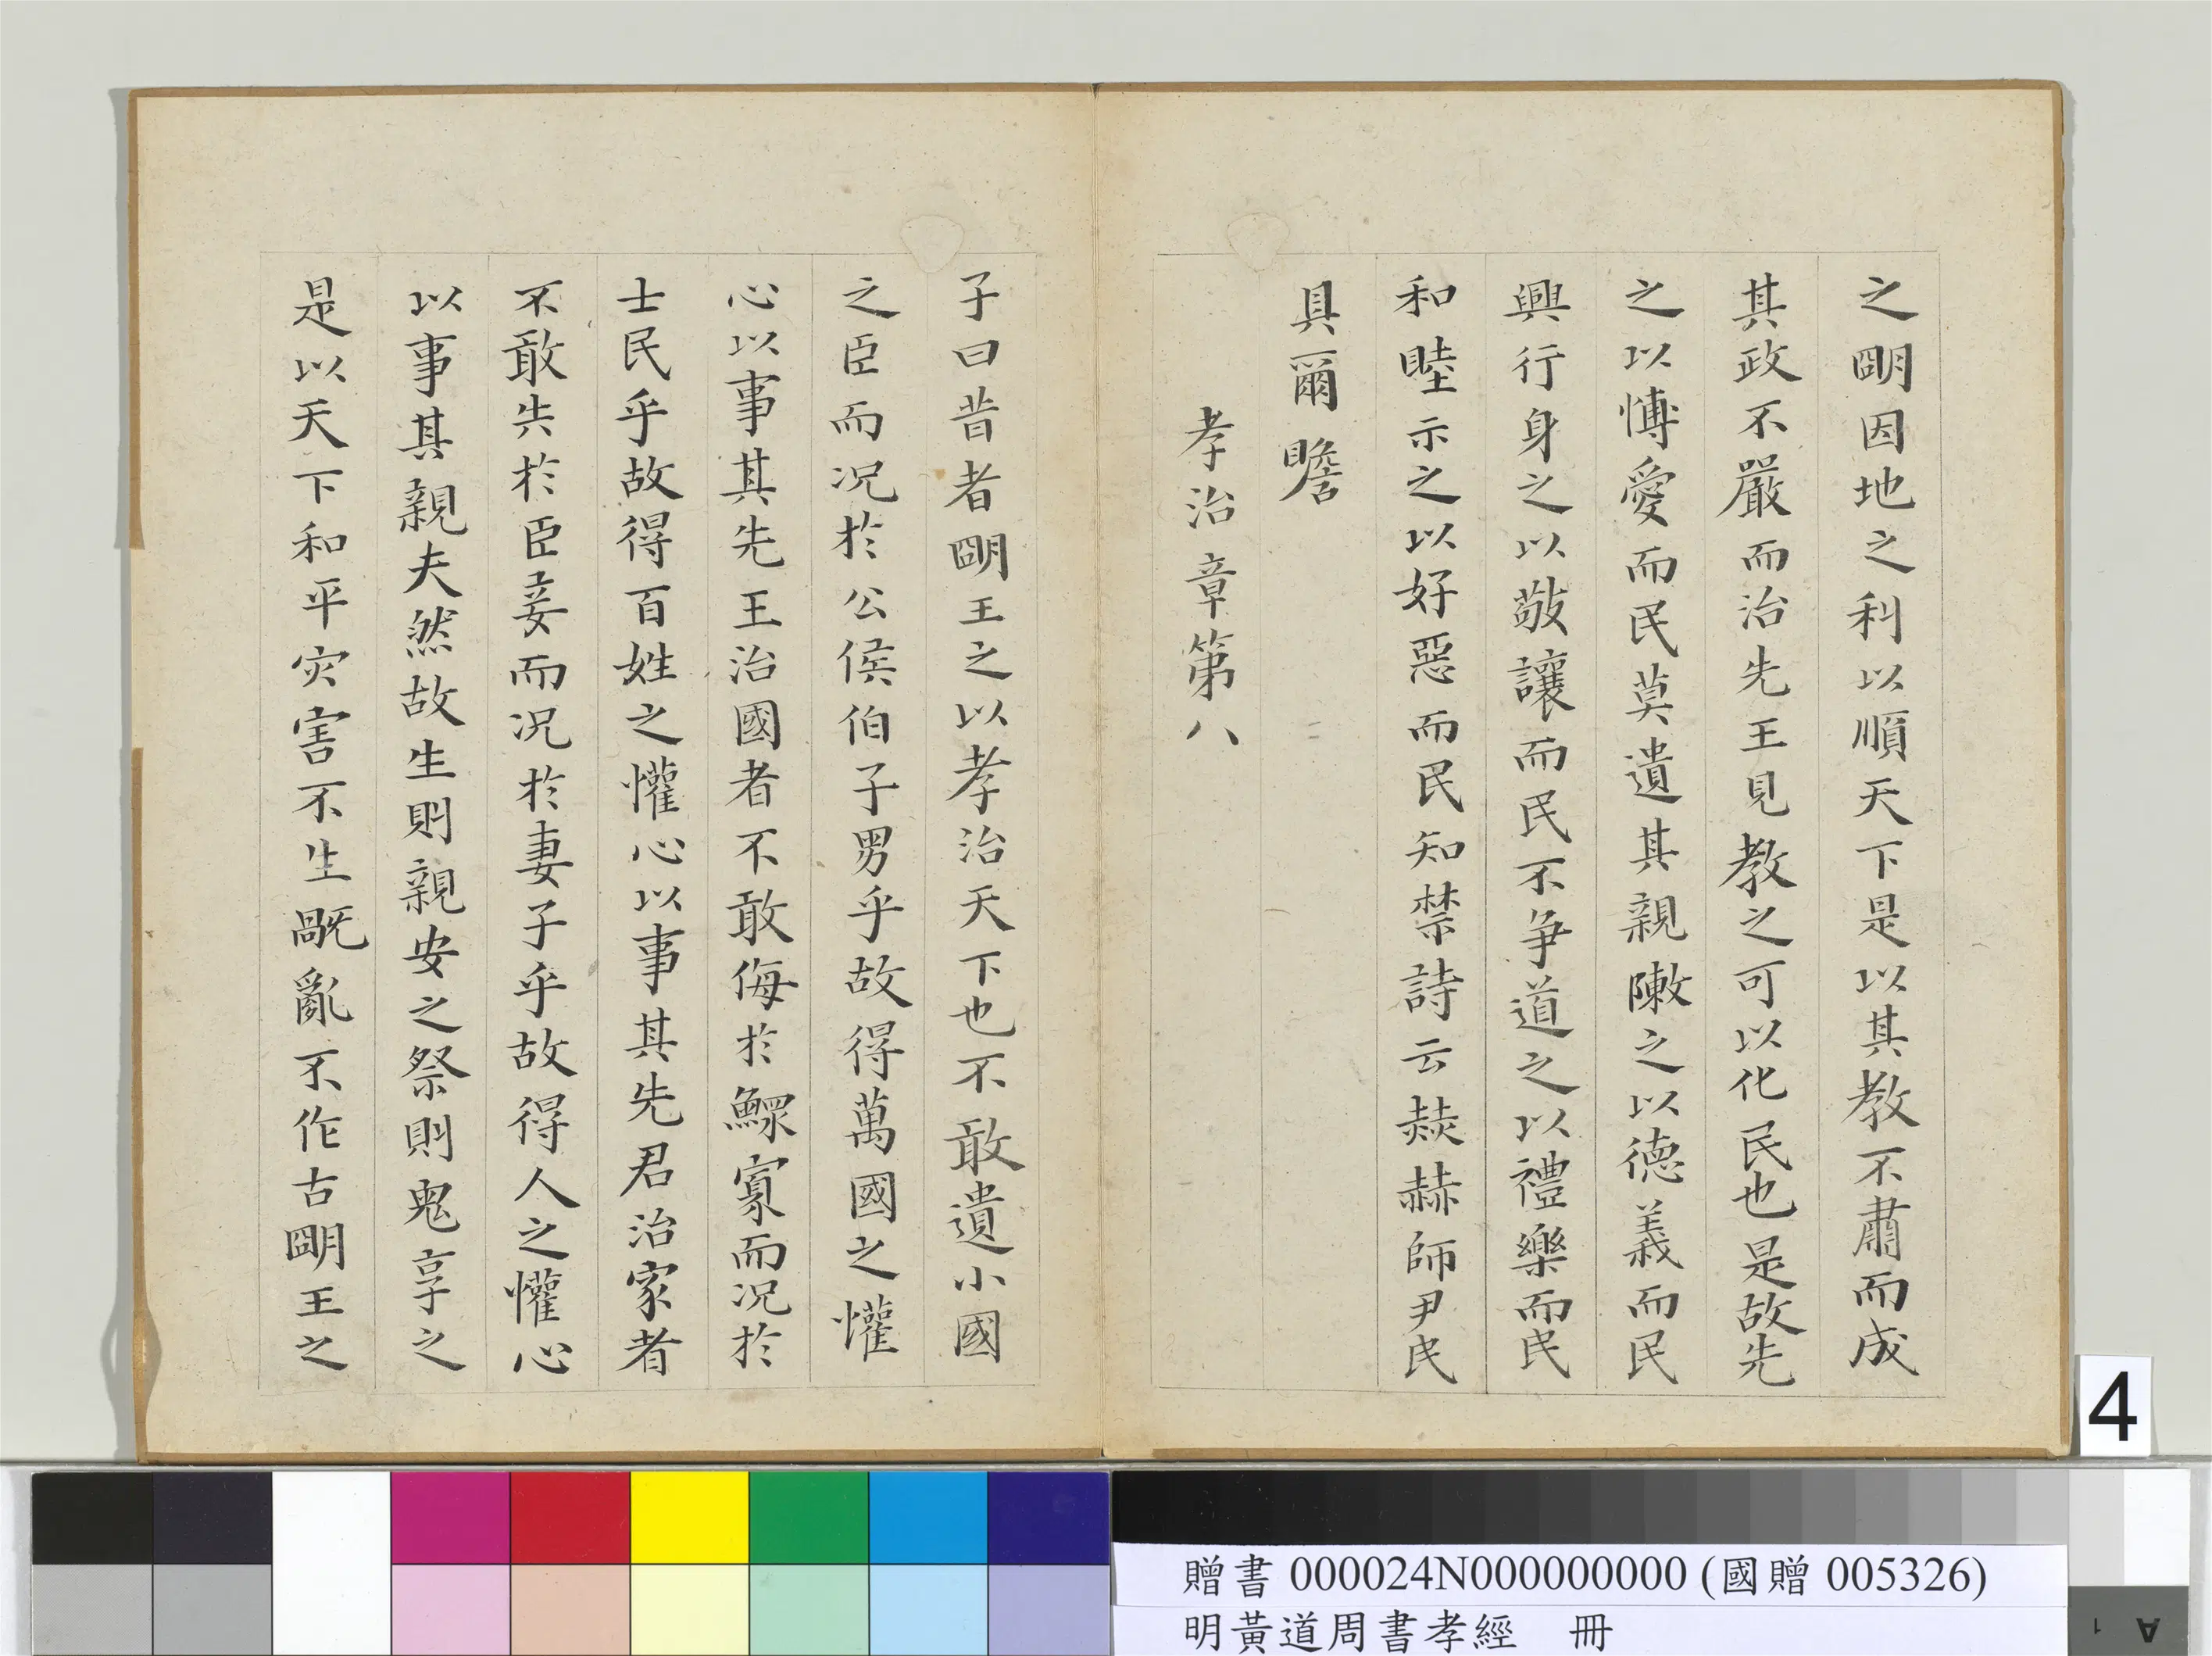 之朙因地之利以順天下是以其教不肅而成
其政不嚴而治先王見教之可以化民也是故先
之以愽愛而民莫遺其親敶之以德義而民
興行身之以敬讓而民不爭道之以禮樂而民
和睦示之以好惡而民知禁詩云赫赫師尹民
具爾瞻
孝治章第八
子曰昔者朙王之以孝治天下也不敢遺小國
之臣而况於公侯伯子男乎故得萬國之懽
心以事其先王治國者不敢侮於鰥寡而况於
士民乎故得百姓之懽心以事其先君治家者
不敢失於臣妾而况於妻子乎故得人之懽心
以事其親夫然故生則親安之祭則鬼享之
是以天下和平灾害不生旤亂不作古朙王之
4
贈書 000024N000000000 (國贈 005326)
明黃道周書孝經 冊
A 1